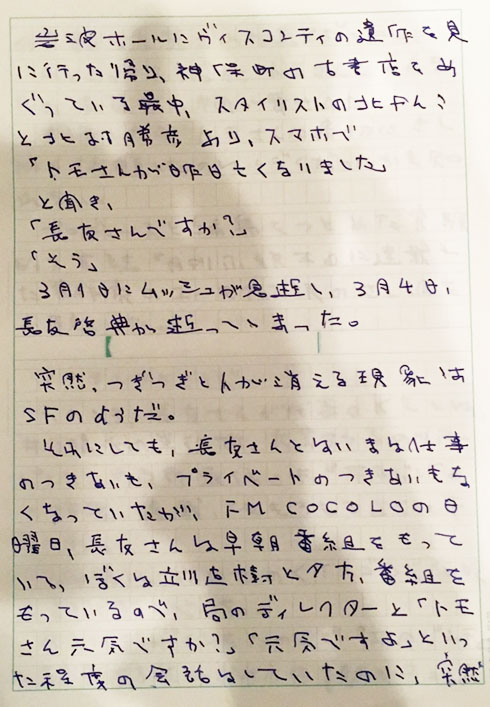 岩波ホールにヴィスコンティの遺作を見
に行った帰り、神保町の古書店をめ
ぐっている最中、スタイリストの北さん
と北村勝彦より、スマホで
「トモさんが昨日亡くなりました」
と聞き、
「長友さんですか?」
「そう」
3月1日にムッシュが急逝し、3月4日、
長友啓典が逝ってしまった。
突然、つぎつぎと人が消える現象は
SFのようだ。
それにしても、長友さんとはいま仕事
のつきあいも、プライベートのつきあいもな
くなっていたが、FM COCOLOの日
曜日、長友さんは早朝番組をもって
いて、ぼくは立川直樹と夕方、番組を
もっているので、局のディレクターと「トモ
さん元気ですか?」「元気ですよ」といっ
た程度の会話はしていたのに、突然